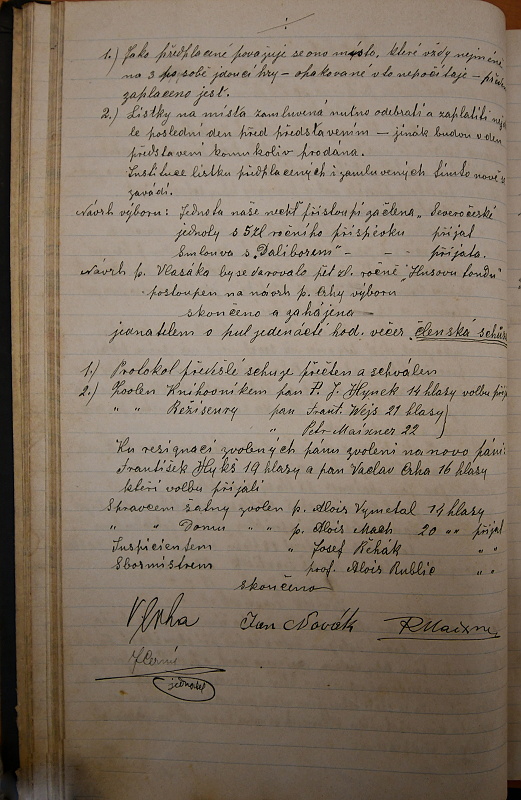 1.) Jako předplacené považuje se ono místo, které vždy nejméně
na 3 po sobě jdoucí hry – opakované v to nepočítaje –
zaplaceno jest.
2.) Lístky na místa zamluvená nutno odebrati a zaplatiti
le poslední den před představením – jinák budou v den
představení komukoliv prodána.
Instituce lístku předplacených i zamluvených tímto nově se
zavádí.
Návrh výboru: Jednota naše nechť přistoupí za člena „Severočeské
jednoty s 5 zl ročního příspěvku přijat
Smlouva s „Daliborem" – - - přijata.
Návrh p. Vlasáka by se darovalo pět zl. ročně „Husovu fondu"
postoupen na návrh p. Crhy výboru
skončeno a zahájena
jednatelem o půl jedenácté hod. večer členská schůze
1.) Protokol předešlé schuze přečten a schválen
2.) Zvolen Knihovníkem pan P. J. Hynek 14 hlasy volbu
" " Režiseury pan Frant. Wejs 21 hlasy
" Petr Maixner 22
Ku resignaci zvolených pánu zvoleni na novo páni:
František Hykš 19 hlasy a pan Vaclav Crha 16 hlasy
kteří volbu přijali
Správcem šatny zvolen p. Alois Vymetal 14 hlasy
" " Domu " " p. Alois Mach 20 " " přijal
Inspicientem " Josef Řehák " "
Sbormistrem prof. Alois Rublic " "
skončeno
V Crha Jan Novák PMaixner
JČerní
jednatel